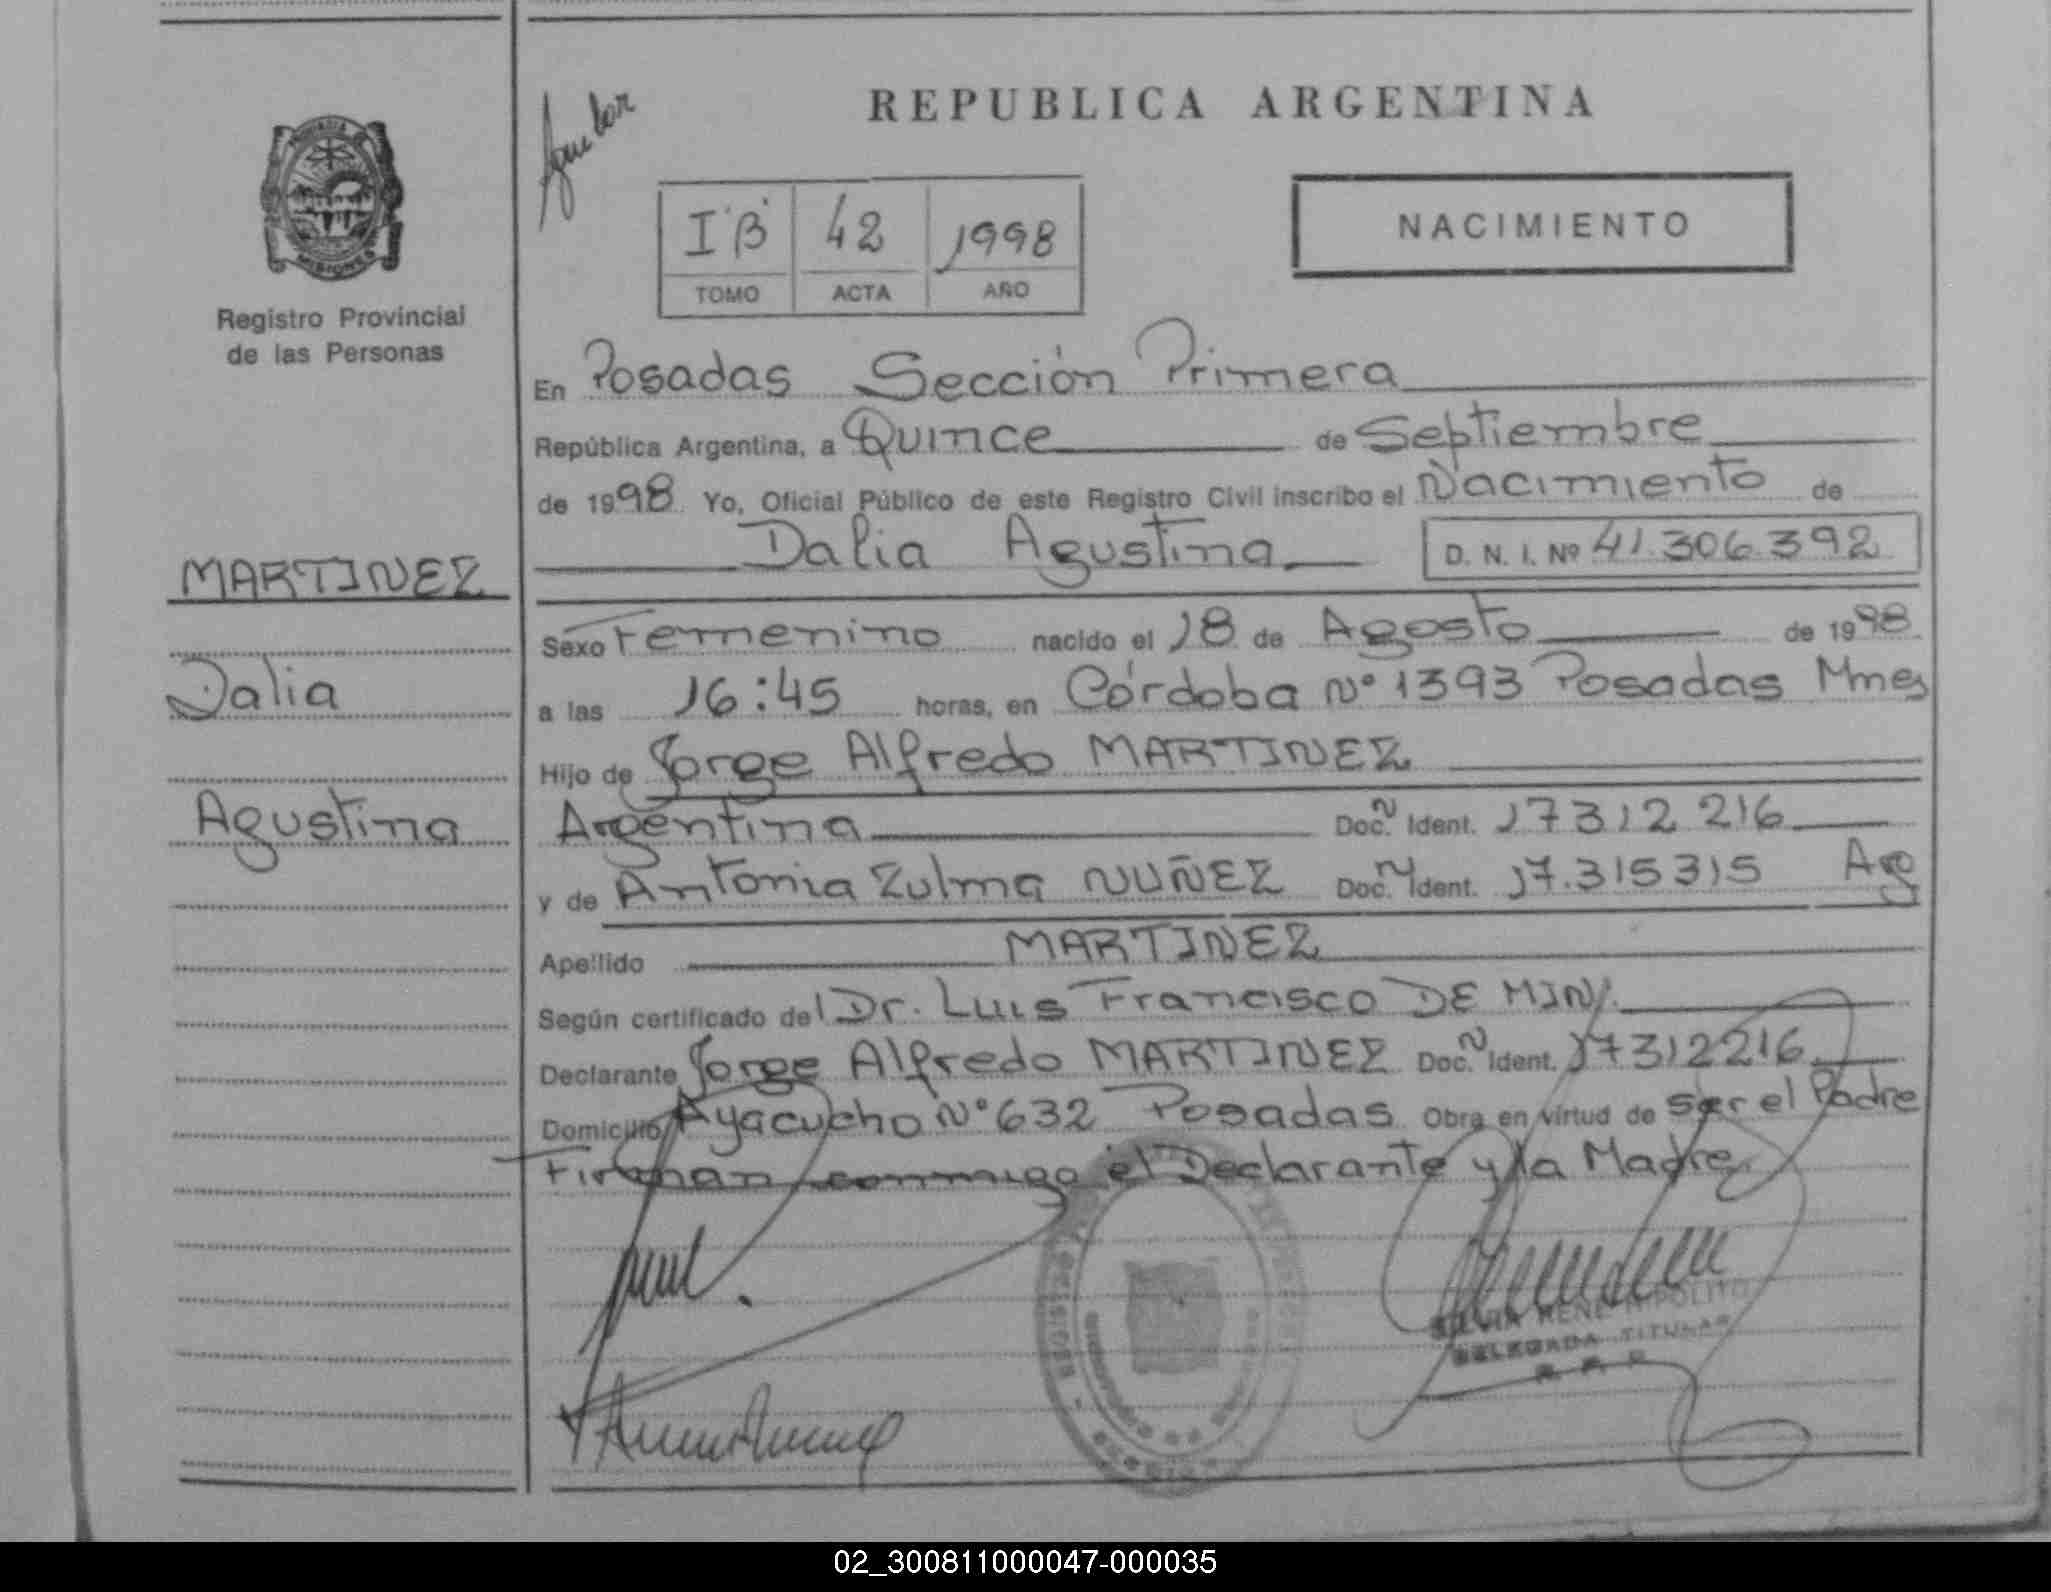 REPUBLICA ARGENTINA
PROVINCIA
MISIONES
I B 42 1998
TOMO ACTA AÑO
NACIMIENTO
Registro Provincial
de las Personas
En Posadas Sección Primera
República Argentina, a Quince de Septiembre
de 1998 Yo, Oficial Público de este Registro Civil inscribo el Nacimiento de
Dalia Agustina D. N. I. Nº 41.306.392
MARTINEZ
Dalia
Agustina
Sexo Femenino nacido el 18 de Agosto de 1998
a las 16:45 horas, en Córdoba Nº 1393 Posadas Mnes
Hijo de Jorge Alfredo MARTINEZ
Argentina Doc. N Ident. 17312216
y de Antonia Zulma NUÑEZ Doc. N Ident. 17.315315 Arg
Apellido MARTINEZ
Según certificado del Dr. Luis Francisco DE MIN
Declarante Jorge Alfredo MARTINEZ Doc. N Ident. 17312216
Domicilio Ayacucho Nº 632 Posadas Obra en virtud de ser el Padre
Firman conmigo el Declarante y la Madre
SILVIA RENE HIPOLITO
DELEGADA TITULAR
R. P. P.
02_300811000047-000035